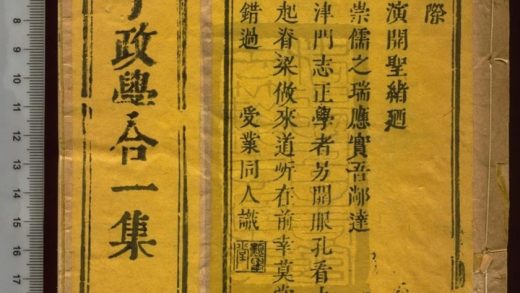 際
演開聖緒廼
崇儒之瑞應實吾達
津門志正學者另開眼孔看
起脊梁做來道所在前幸莫
錯過 受業同人識
政學合一集
8
9
10
11
12
13
14
15
16
17